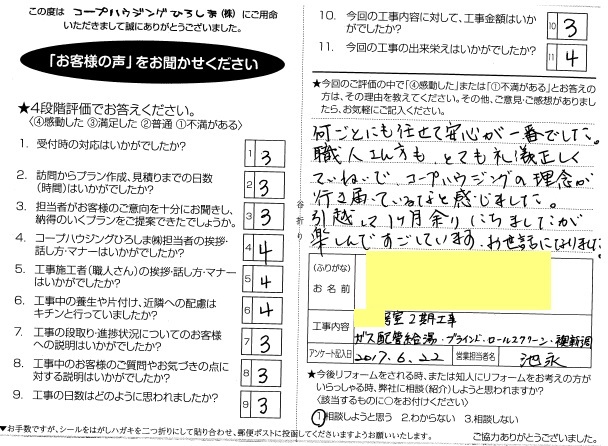 この度は コープハウジングひろしま(株) にご用命
いただきまして誠にありがとうございました。
「お客様の声」をお聞かせください
★4段階評価でお答えください。
〈④感動した ③満足した ②普通 ①不満がある〉
1. 受付時の対応はいかがでしたか?
1 3
2. 訪問からプラン作成、見積りまでの日数
(時間)はいかがでしたか?
2 3
3. 担当者がお客様のご意向を十分にお聞きし、
納得のいくプランをご提案できたでしょうか。
3 3
4. コープハウジングひろしま㈱担当者の挨拶・
話し方・マナーはいかがでしたか?
4 4
5. 工事施工者(職人さん)の挨拶・話し方・マナー
はいかがでしたか?
5 4
6. 工事中の養生や片付け、近隣への配慮は
キチンと行っていましたか?
6 4
7. 工事の段取り・進捗状況についてのお客様
への説明はいかがでしたか?
7 3
8. 工事中のお客様のご質問やお気づきの点に
対する説明はいかがでしたか?
8 3
9. 工事の日数はどのように思われましたか?
9 3
谷折り
10. 今回の工事内容に対して、工事金額はいか
がでしたか?
10 3
11. 今回の工事の出来栄えはいかがでしたか?
11 4
★今回のご評価の中で「④感動した」または「①不満がある」とお答え
の方は、その理由を教えてください。その他、ご意見・ご感想がありまし
たら、お気軽にご記入ください。
何ごとにも任せて安心が一番でした。
職人さん方も、とても礼儀正しく
ていねいで、コープハウジングの理念が
行き届いているなと感じました。
引越して1ヶ月余りにちましたが
楽しんですごしています。お世話になりました。
(ふりがな)
お名前
工事内容
居室2期工事
ガス配管給湯・ブラインド・ロールスクリーン・襖新調
アンケート記入日 2017.6.22 営業担当者名 池永
★今後リフォームをされる時、または知人にリフォームをお考えの方が
いらっしゃる時、弊社に相談(紹介)しようと思われますか?
〈該当するものに○をお付けください〉
①相談しようと思う 2.わからない 3.相談しない
ご協力ありがとうございました。
▼お手数ですが、シールをはがしハガキを二つ折りにして貼り合わせ、郵便ポストに投函してくださいますようお願いいたします。